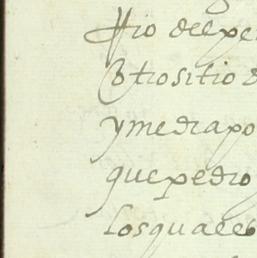 tio del pe
otro sitio d
y media po
que pedro
los quales